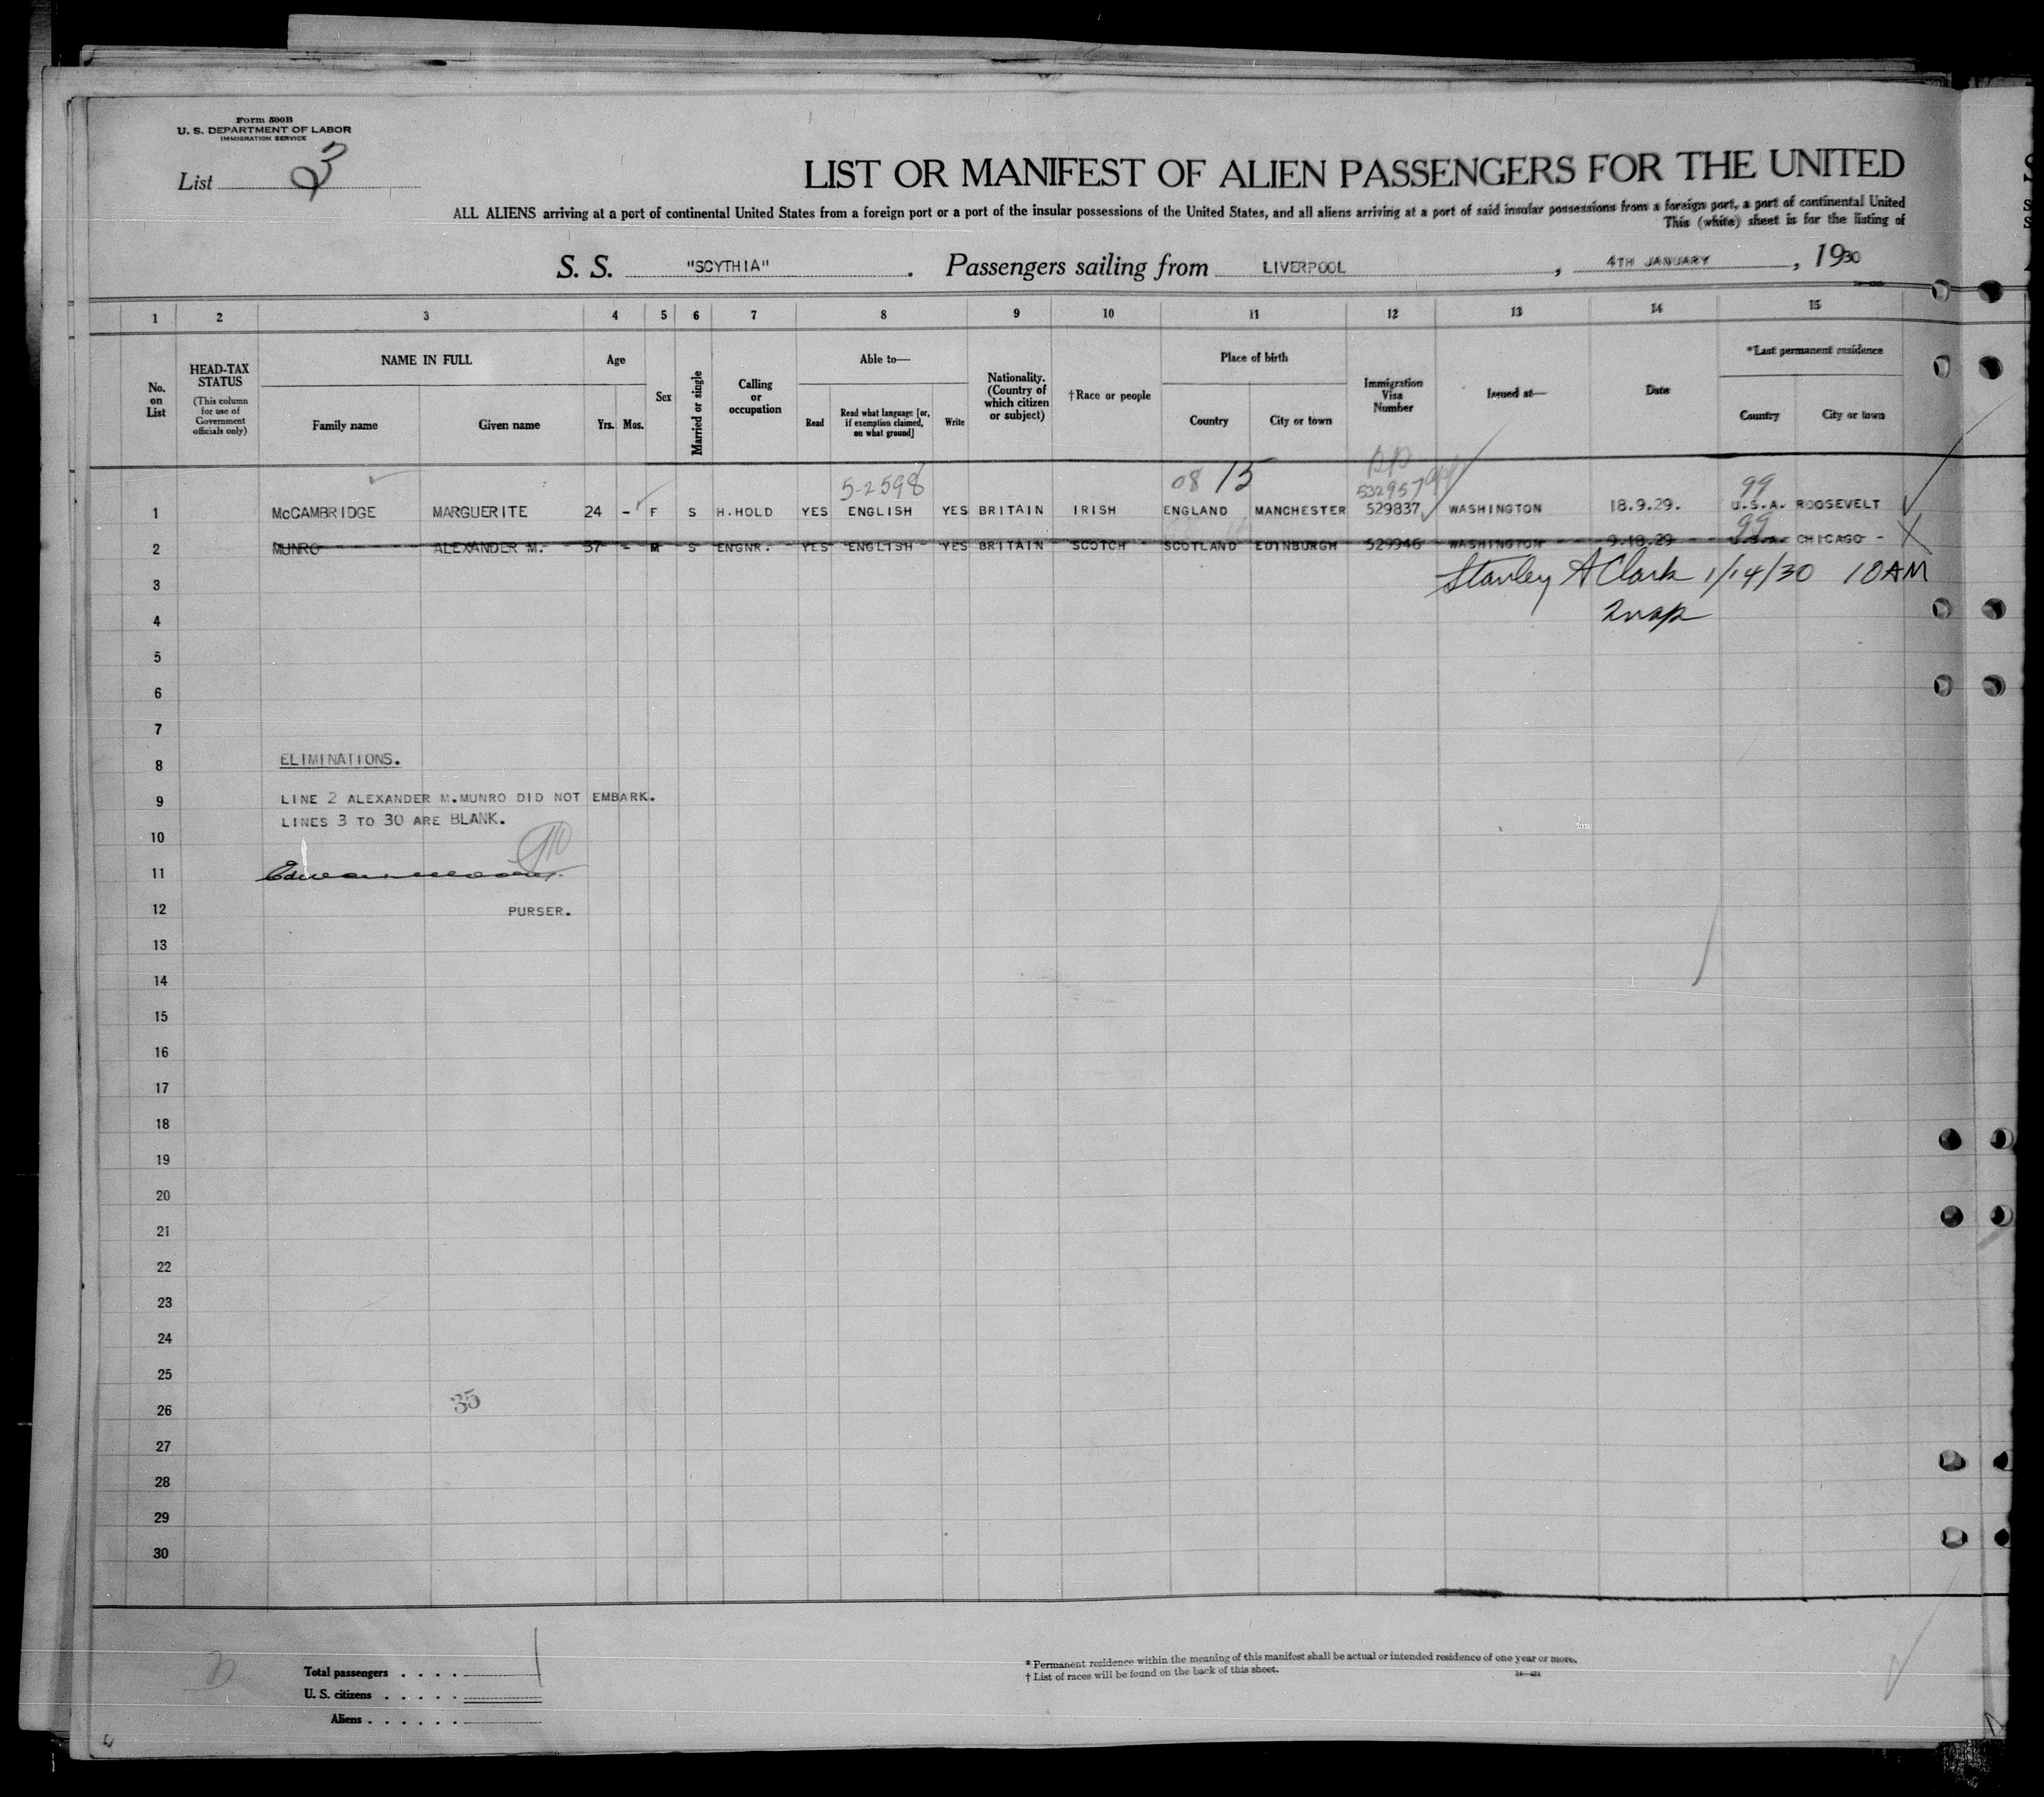 Form 500B
U. S. DEPARTMENT OF LABOR
IMMIGRATION SERVICE
List 3
LIST OR MANIFEST OF ALIEN PASSENGERS FOR THE UNITED
ALL ALIENS arriving at a port of continental United States from a foreign port or a port of the insular possessions of the United States, and all aliens arriving at a port of said insular possessions from a foreign port, a port of continental United
This (white) sheet is for the listing of
S. S. "SCYTHIA". Passengers sailing from LIVERPOOL, 4TH JANUARY, 1930
1 2 3 4 5 6 7 8 9 10 11 12 13 14 15
No. on List
HEAD-TAX STATUS
(This column for use of Government officials only)
NAME IN FULL
Family name Given name
Age
Yrs. Mos.
Sex
Married or single
Calling or occupation
Able to—
Read
Read what language [or, if exemption claimed, on what ground]
Write
Nationality. (Country of which citizen or subject)
†Race or people
Place of birth
Country City or town
Immigration Visa Number
Issued at—
Date
*Last permanent residence
Country City or town
5-2598 08 15 532957 99
1 McCAMBRIDGE MARGUERITE 24 - F S H.HOLD YES ENGLISH YES BRITAIN IRISH ENGLAND MANCHESTER 529837 WASHINGTON 18.9.29. U.S.A. ROOSEVELT
99
2 MUNRO ALEXANDER M. 37 - M S ENGNR. YES ENGLISH YES BRITAIN SCOTCH SCOTLAND EDINBURGH 529946 WASHINGTON 9.10.29 U.S.A. CHICAGO -
Stanley A Clark 1/14/30 10 AM
3
4
5
6
7
8 ELIMINATIONS.
9 LINE 2 ALEXANDER M.MUNRO DID NOT EMBARK.
LINES 3 TO 30 ARE BLANK.
10
11
12 PURSER.
13
14
15
16
17
18
19
20
21
22
23
24
25
26 35
27
28
29
30
Total passengers . . . . 1
U. S. citizens . . . . .
Aliens . . . . . .
* Permanent residence within the meaning of this manifest shall be actual or intended residence of one year or more.
† List of races will be found on the back of this sheet.